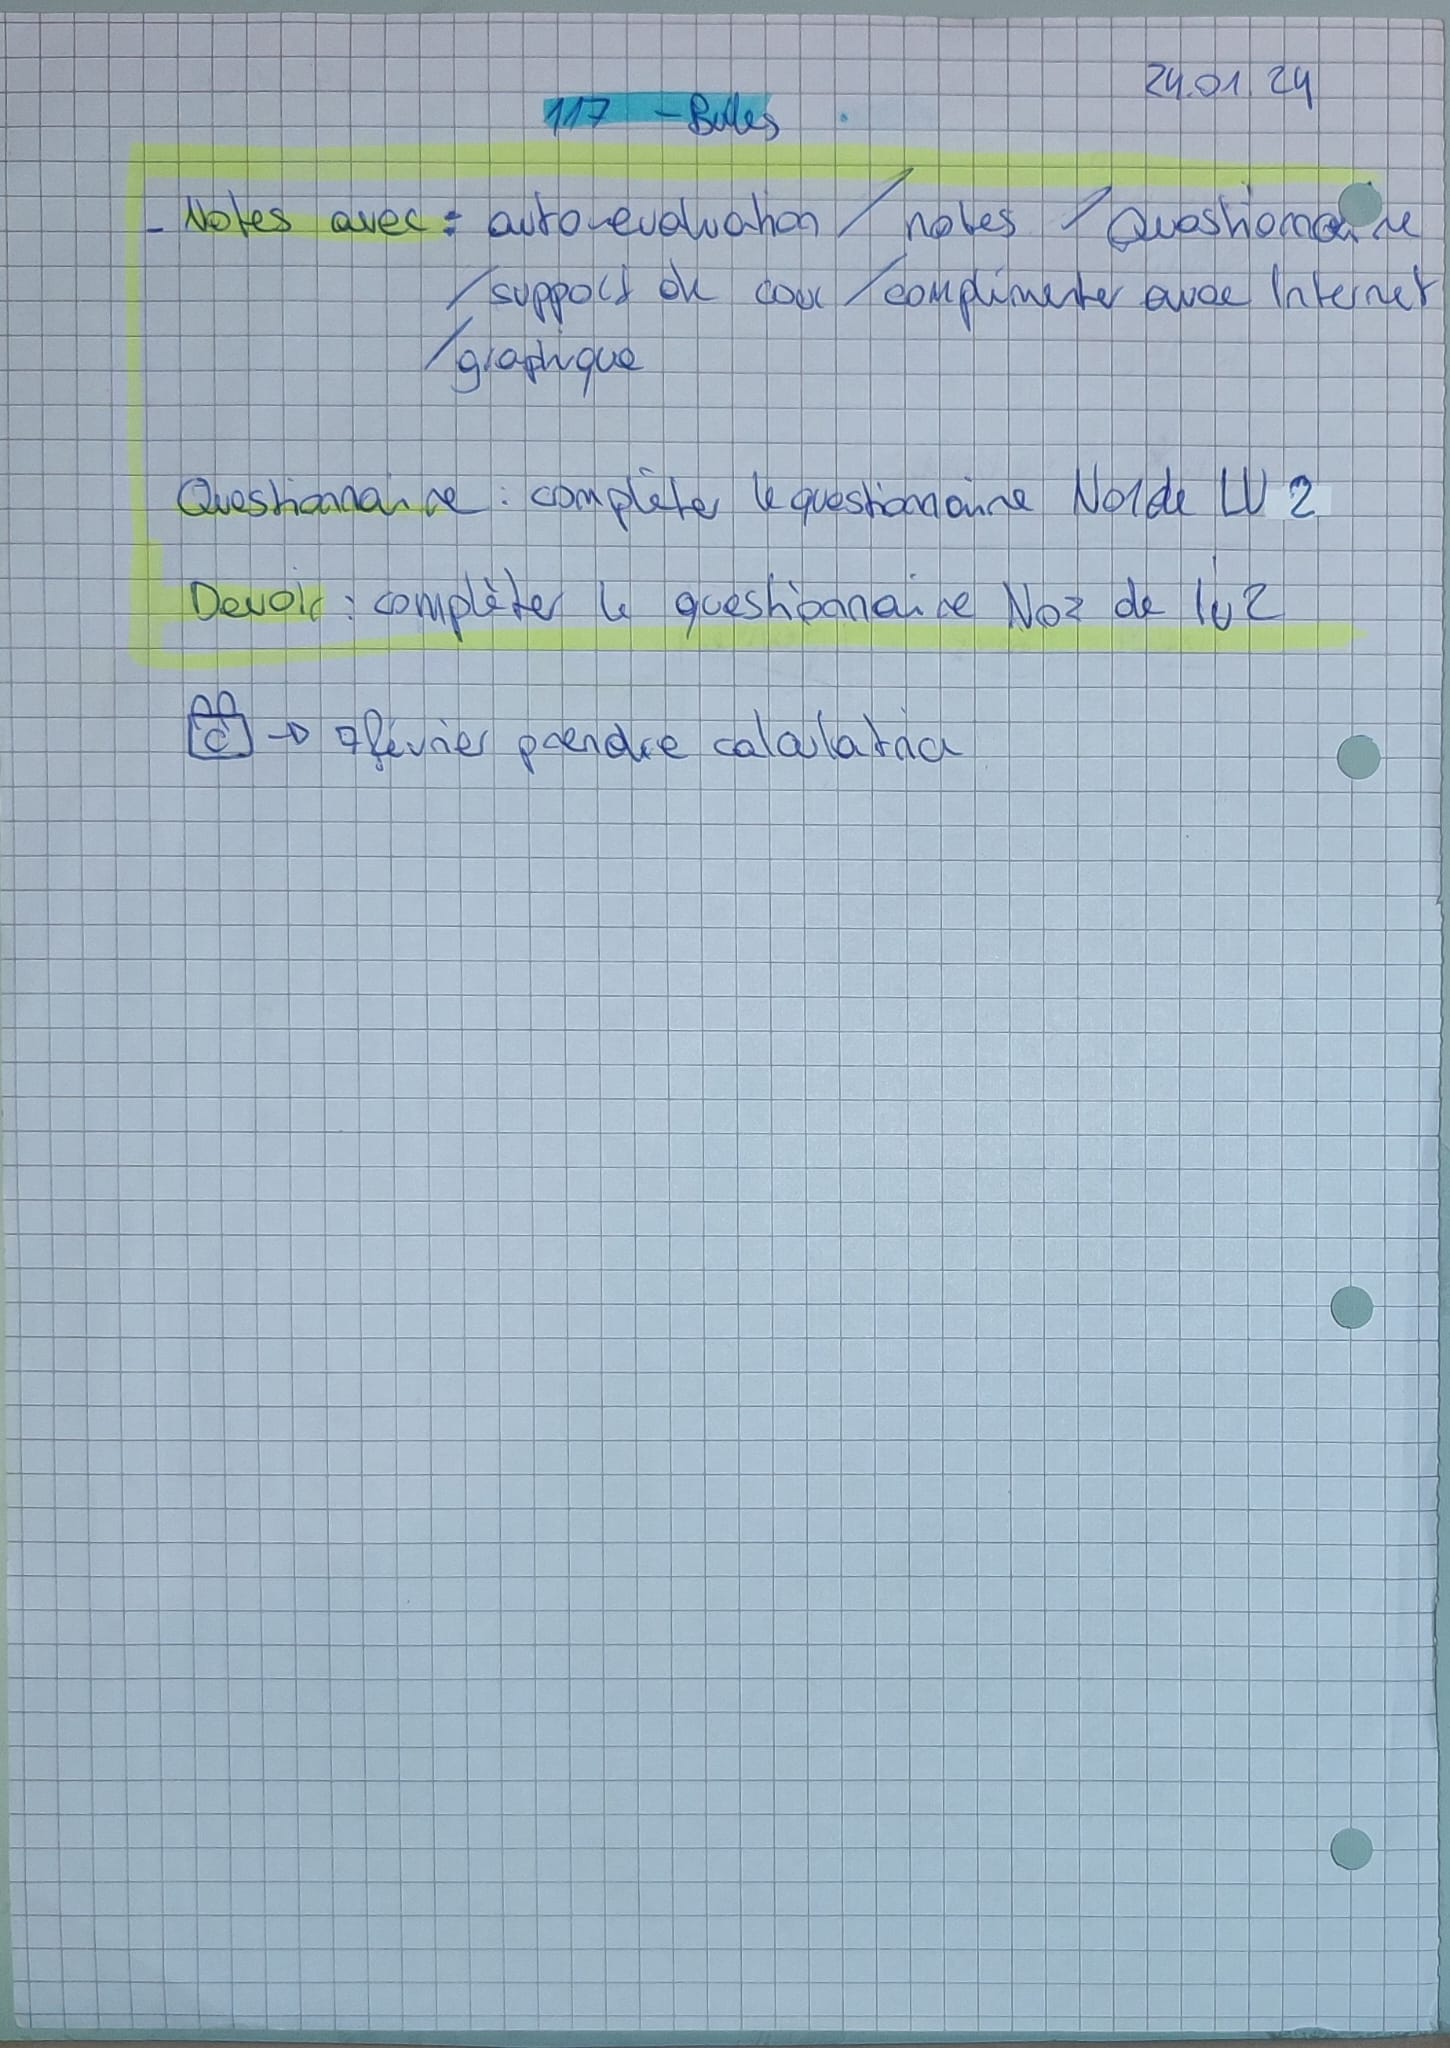 24.01.24
117 - Bulles
- Notes avec : auto-evaluation / notes / Questionnaire
/ support de cour / complimenter avec Internet
/ graphique
Questionnaire : complèter le questionnaire No1 de LU 2
Devoir : complèter le questionnaire No2 de lu 2
C → 7 février prendre calculatrice